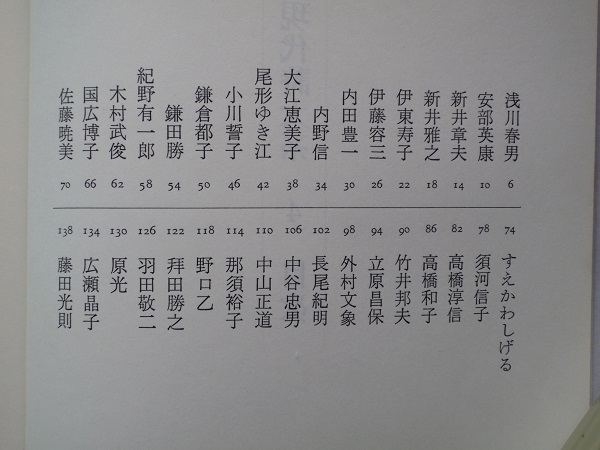 浅川春男 6
安部英康 10
新井章夫 14
新井雅之 18
伊東寿子 22
伊藤容三 26
内田豊一 30
内野信 34
大江恵美子 38
尾形ゆき江 42
小川誓子 46
鎌倉都子 50
鎌田勝 54
紀野有一郎 58
木村武俊 62
国広博子 66
佐藤暁美 70
74 すえかわしげる
78 須河信子
82 高橋淳信
86 高橋和子
90 竹井邦夫
94 立原昌保
98 外村文象
102 長尾紀明
106 中谷忠男
110 中山正道
114 那須裕子
118 野口乙
122 拜田勝之
126 羽田敬二
130 原光
134 広瀬晶子
138 藤田光則